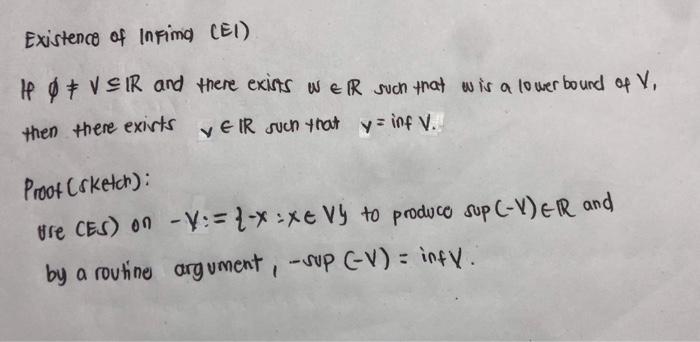 Existence of Infima (EI)
If ∅ ≠ V ⊆ ℝ and there exists w ∈ ℝ such that w is a lower bound of V,
then there exists v ∈ ℝ such that v = inf V.
Proof (sketch):
Use (ES) on -V := {-x : x ∈ V} to produce sup (-V) ∈ ℝ and
by a routine argument, -sup (-V) = inf V.